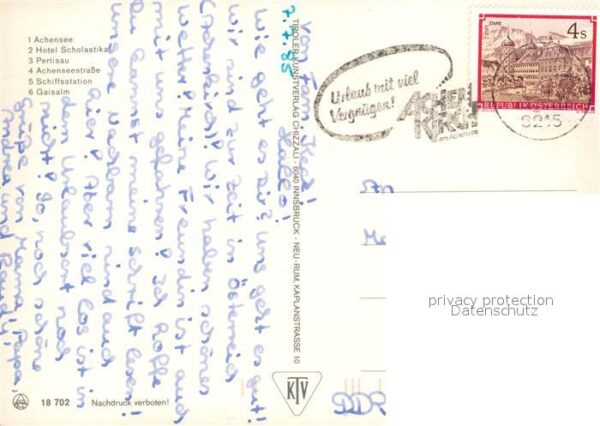 1 Achensee
2 Hotel Scholastika
3 Pertisau
4 Achenseestraße
5 Schiffsstation
6 Gaisalm
7.7.85
Hallo!
Wie geht es dir? Uns geht es gut!
Wir sind zur Zeit in Österreich
Wir haben schönes
Wetter! Meine Freundin ist auch
mit uns gefahren! Ich hoffe
Du kannst meine Schrift lesen!
Unsere Nachbarn sind auch
hier! Aber viel los ist in
dem Urlaubsort noch
nicht! So noch schöne
Grüße von Mama, Papa,
Andrea und
TIROLER KUNSTVERLAG CHIZZALI · 6040 INNSBRUCK - NEU-RUM, KAPLANSTRASSE 10
Urlaub mit viel
Vergnügen!
ACHEN
KIRCH
am Achensee
STIFT STAMS
4 S
REPUBLIK ÖSTERREICH
6215
privacy protection
Datenschutz
KTV
18 702
Nachdruck verboten!